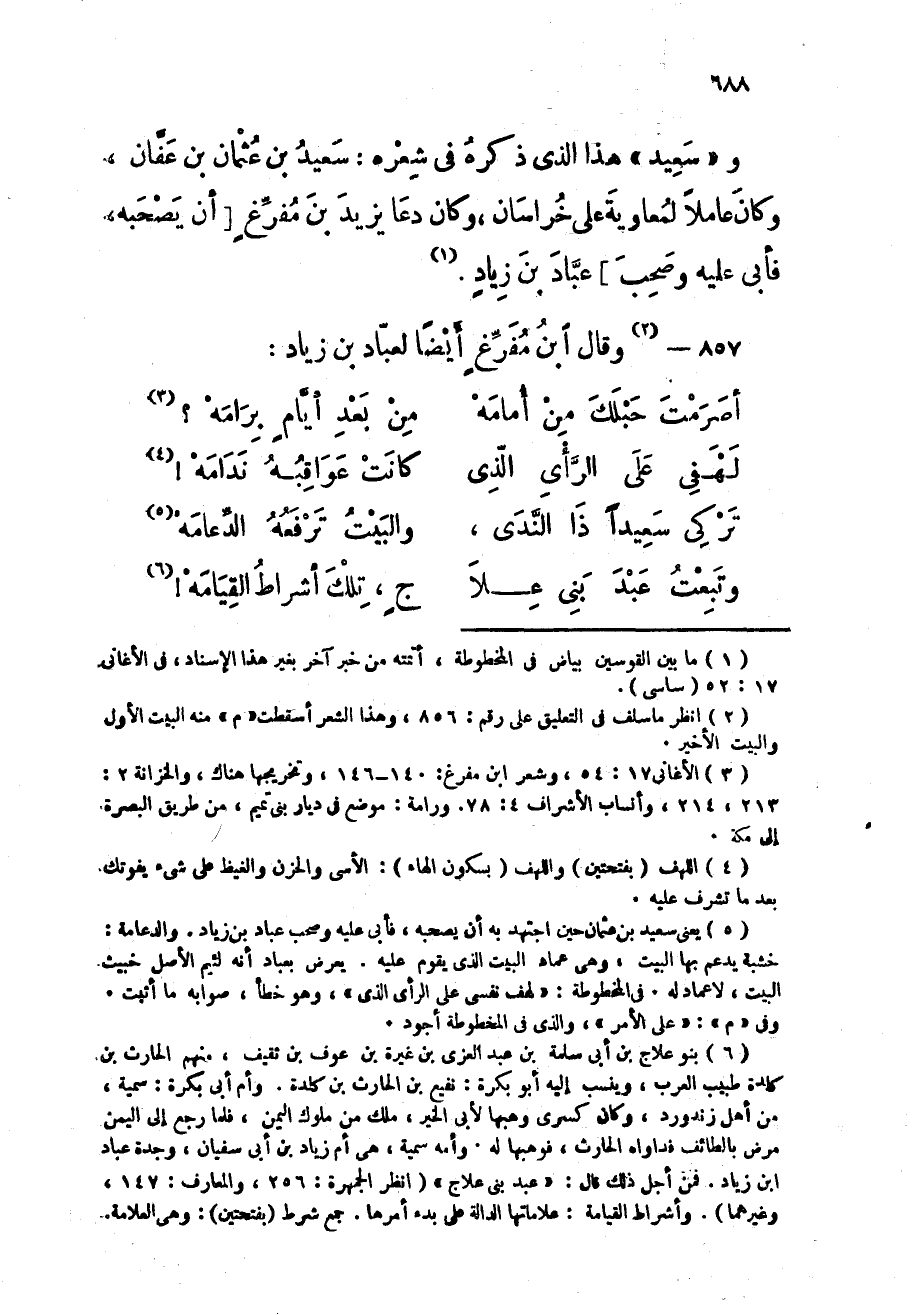 ٦٨٨
و « سَعِيد » هذا الذى ذكرهُ فى شِعْره : سَعيدُ بن عُثْمان بن عَفَّان ،
وكانَ عاملاً لمُعاويةَ على خُراسَان ، وكان دعَا يزيدَ بنَ مُفرِّغٍ [ أن يَصْحَبه ،
فأبى عليه وصَحِبَ ] عبَّادَ بنَ زيادٍ . (١)
٨٥٧ – (٢) وقال ٱبنُ مُفَرِّغٍ أيْضًا لعبّاد بن زياد :
أصَرَمْتَ حَبْلَكَ مِنْ أُمامَهْ مِنْ بَعْدِ أيَّامٍ بِرَامَهْ ؟ (٣)
لَهْفِي عَلَى الرَّأْيِ الَّذِى كانَتْ عَوَاقِبُهُ نَدَامَهْ ! (٤)
تَرْكِى سَعِيداً ذَا النَّدَى ، والبَيْتُ تَرْفَعُهُ الدِّعامَهْ (٥)
وتَبِعْتُ عَبْدَ بَنِي عِـلاَ جٍ ، تِلْكَ أشراطُ القِيَامَهْ ! (٦)
( ١ ) ما بين القوسين بياض فى المخطوطة ، أثبته من خبر آخر بغير هذا الإسناد ، فى الأغانى
١٧ : ٥٢ ( ساسى ) .
( ٢ ) انظر ماسلف فى التعليق على رقم : ٨٥٦ ، وهذا الشعر أسقطت « م » منه البيت الأول
والبيت الأخير .
( ٣ ) الأغانى ١٧ : ٥٤ ، وشعر ابن مفرغ : ١٤٠ – ١٤٦ ، وتخريجها هناك ، والخزانة ٢ :
٢١٣ ، ٢١٤ ، وأنساب الأشراف ٤ : ٧٨ . ورامة : موضع فى ديار بنى تميم ، من طريق البصرة
إلى مكة .
( ٤ ) اللهف ( بفتحتين ) واللهف ( بسكون الهاء ) : الأسى والحزن والغيظ على شىء يفوتك
بعد ما تشرف عليه .
( ٥ ) يعنى سعيد بن عثمان حين اجتهد به أن يصحبه ، فأبى عليه وصحب عباد بن زياد . والدعامة :
خشبة يدعم بها البيت ، وهى عماد البيت الذى يقوم عليه . يعرض بعباد أنه لئيم الأصل خبيث
البيت ، لاعماد له . فى المخطوطة : « لهف نفسى على الرأى الذى » ، وهو خطأ ، صوابه ما أثبت .
وفى « م » : « على الأمر » ، والذى فى المخطوطة أجود .
( ٦ ) بنو علاج بن أبى سلمة بن عبد العزى بن غيرة بن عوف بن ثقيف ، منهم الحارث بن
كلدة طبيب العرب ، وينسب إليه أبو بكرة : نفيع بن الحارث بن كلدة . وأم أبى بكرة : سمية ،
من أهل زندورد ، وكان كسرى وهبها لأبى الخير ، ملك من ملوك اليمن ، فلما رجع إلى اليمن
مرض بالطائف فداواه الحارث ، فوهبها له . وأمه سمية ، هى أم زياد بن أبى سفيان ، وجدة عباد
ابن زياد . فمن أجل ذلك قال : « عبد بنى علاج » ( انظر الجمهرة : ٢٥٦ ، والمعارف : ١٤٧ ،
وغيرهما ) . وأشراط القيامة : علاماتها الدالة على بدء أمرها . جمع شرط ( بفتحتين ) : وهى العلامة .